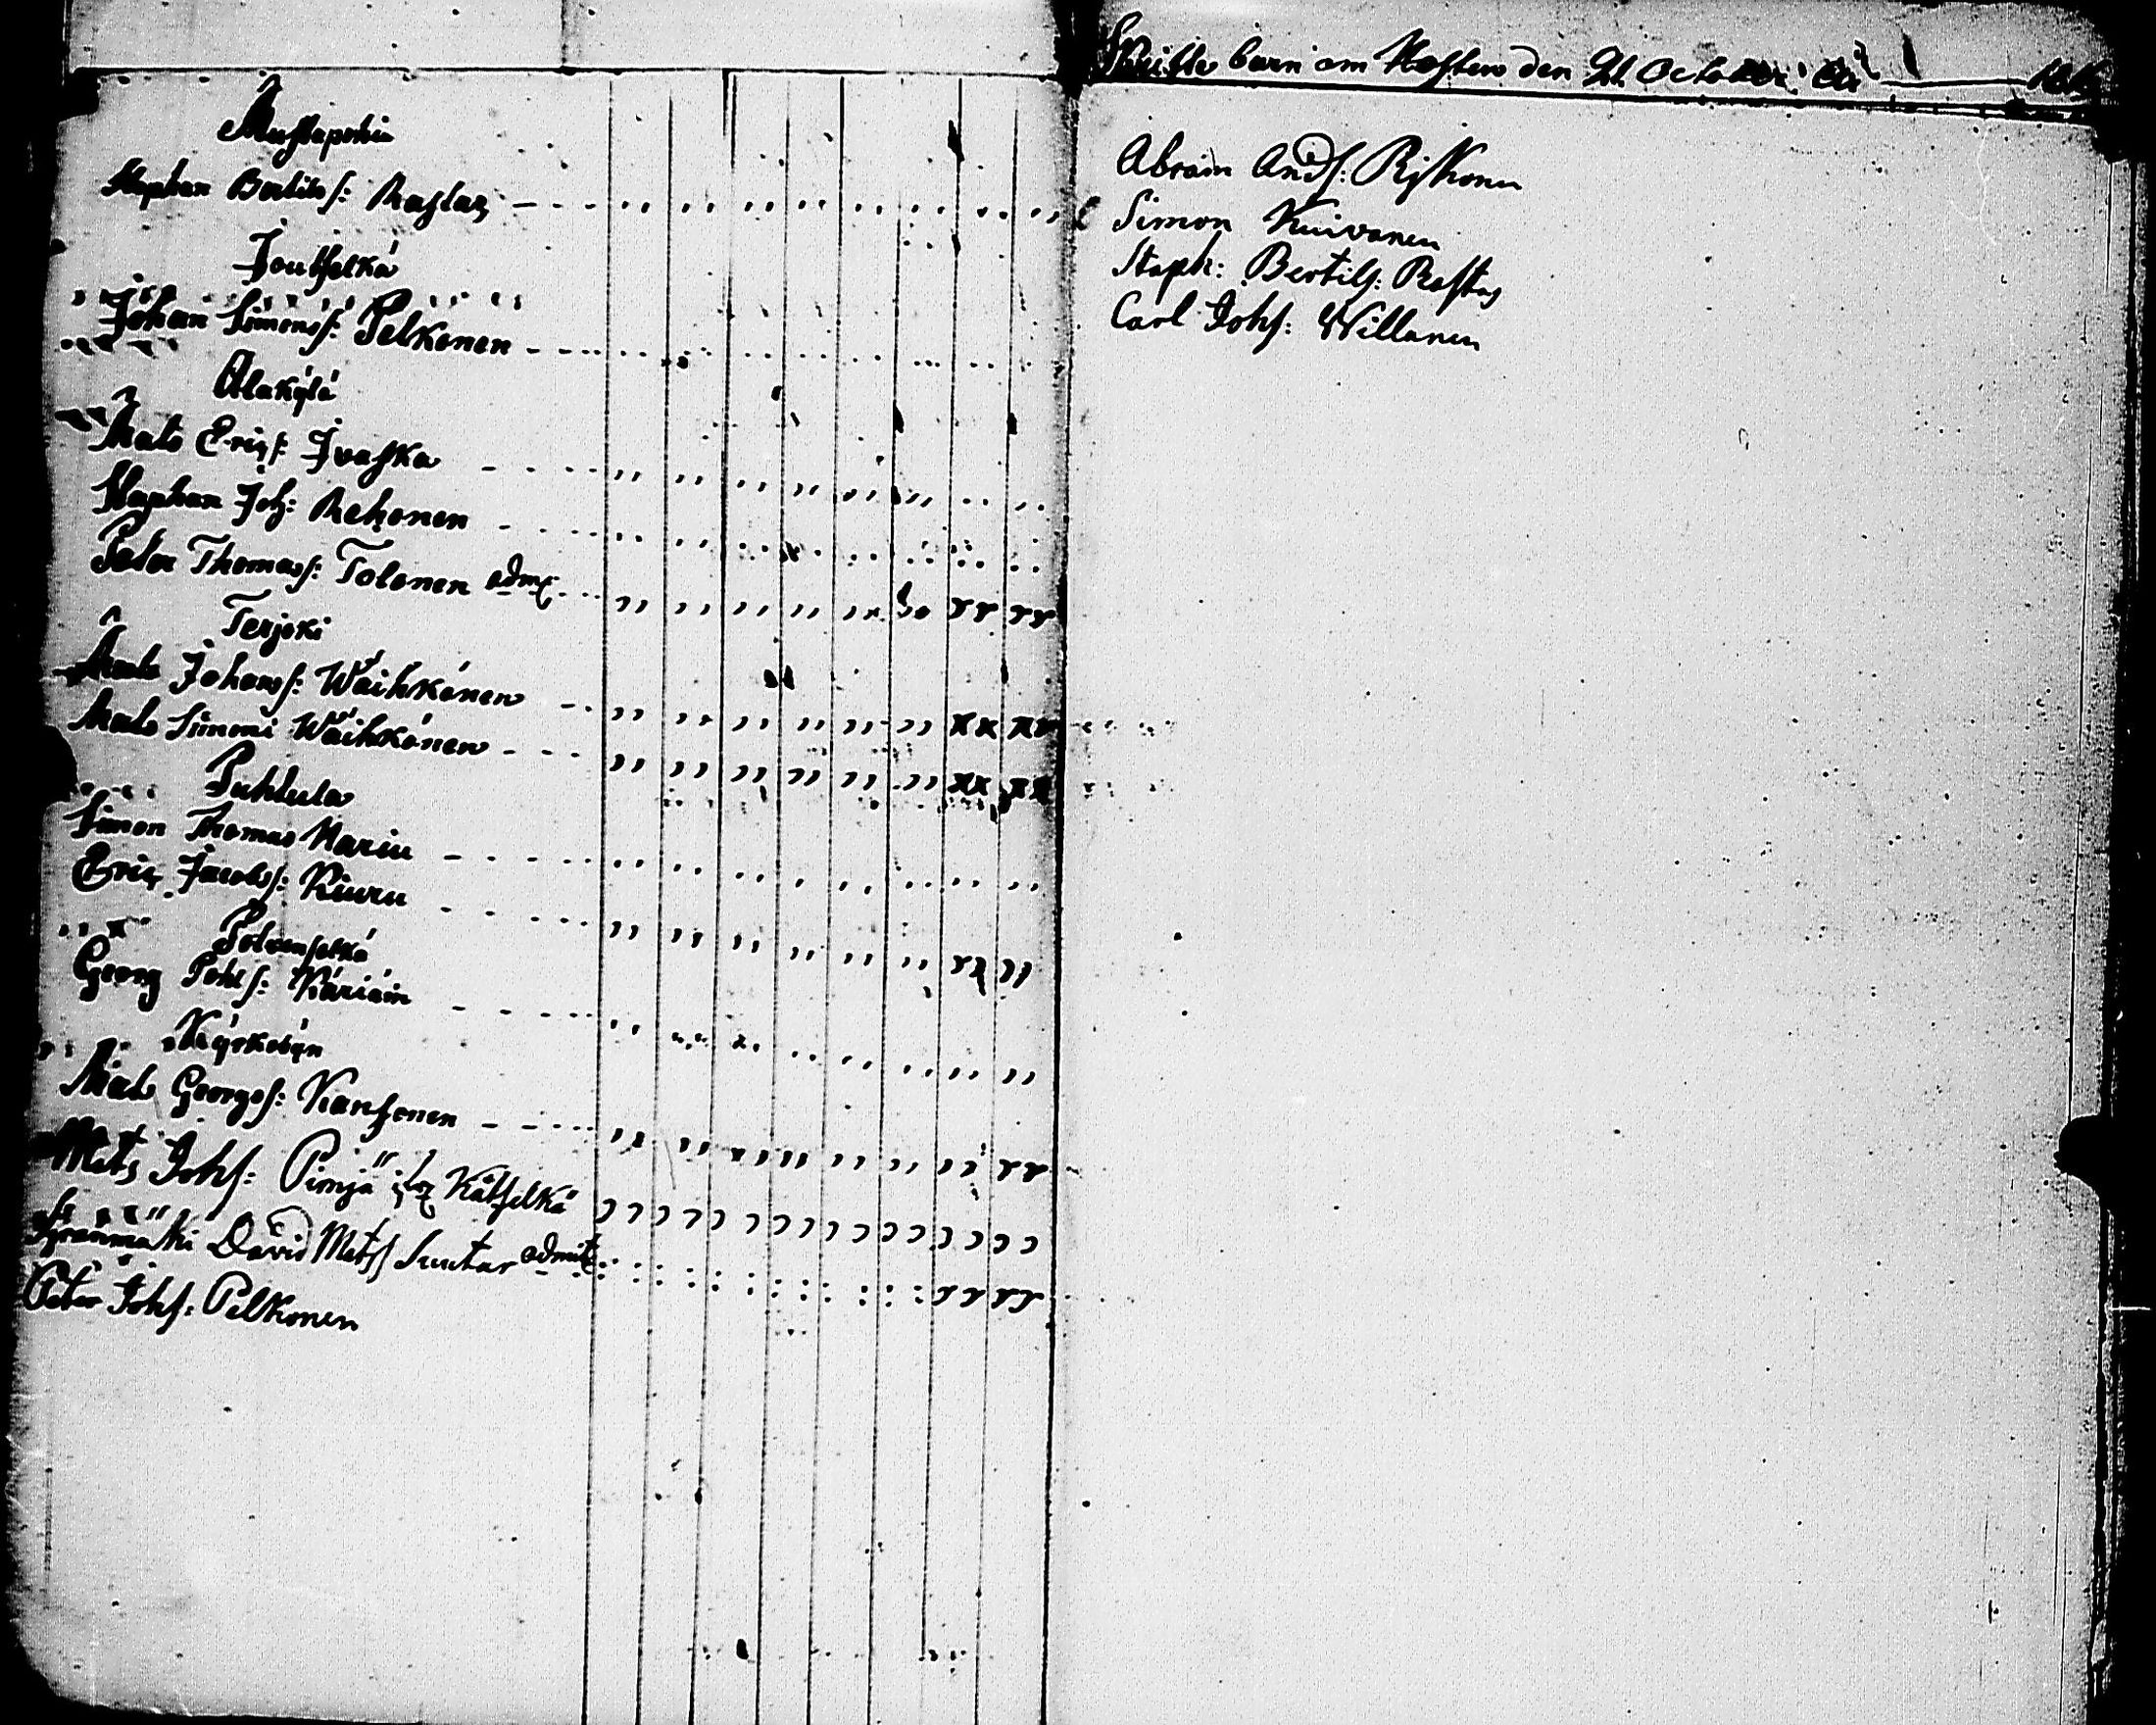 Mustapohia
Stephan Bertilss: Rastas
Joutselkä
Johan Simonss: Pelkonen
Alakylä
Mats Ericss: Ivaska
Stephan Joh: Rekonen
Peter Thomass: Tolonen admt
Terjoki
Mats Johanss: Wäihkönen
Mats Simoni Wäihkönen
Puhtula
Simon Thomas Hariu
Eric Jacobss: Kiuru
Polvenselkä
Georg Pohls: Käriäin
Kyrkobyn
Mats Georgss: Kansonen
Mats Johss: Pimjä Kätselkä
David Matss Suutar admit
Peter Johss: Pelkonen
barn om Hosten den 21 October
Abram Ands: Rijkonen
Simon Kuivanen
Steph: Bertils: Rastas
Carl Johs: Willanen